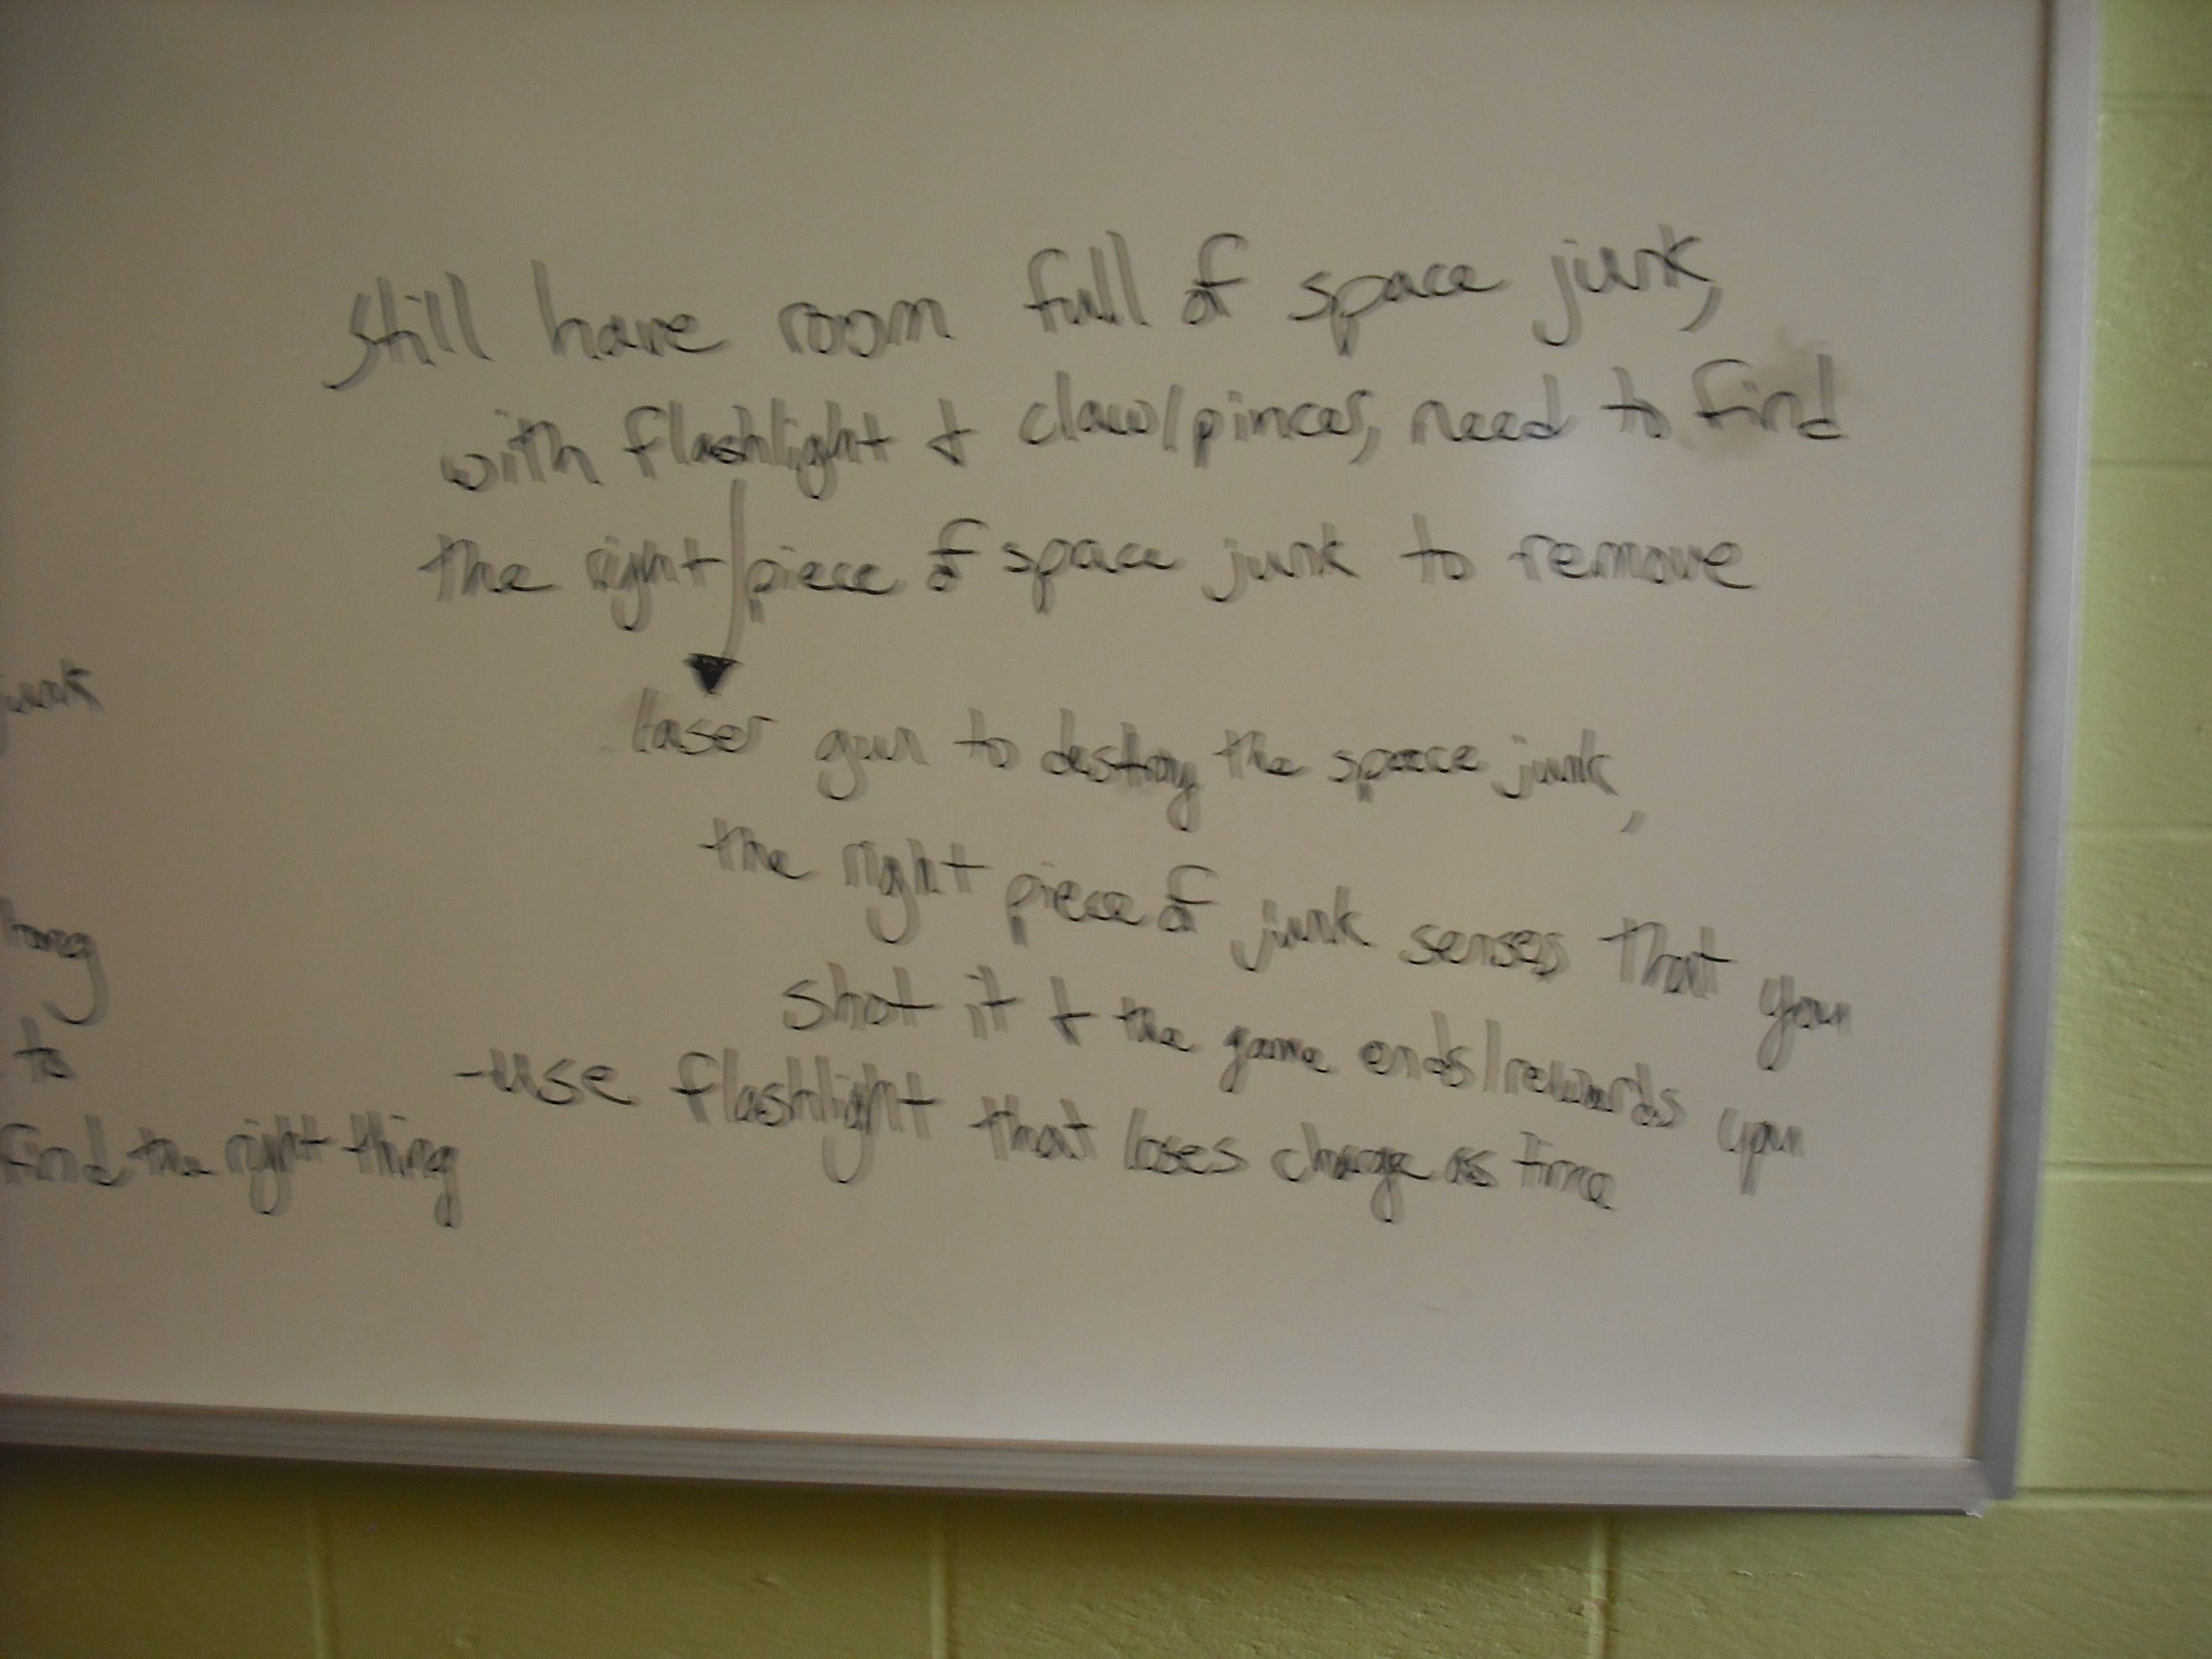 still have room full of space junk,
with flashlight & claw/pinces, need to find
the right piece of space junk to remove
junk
laser gun to destroy the space junk,
the right piece of junk senses that you
shot it & the game ends/rewards you
to
-use flashlight that loses charge as time
find the right thing